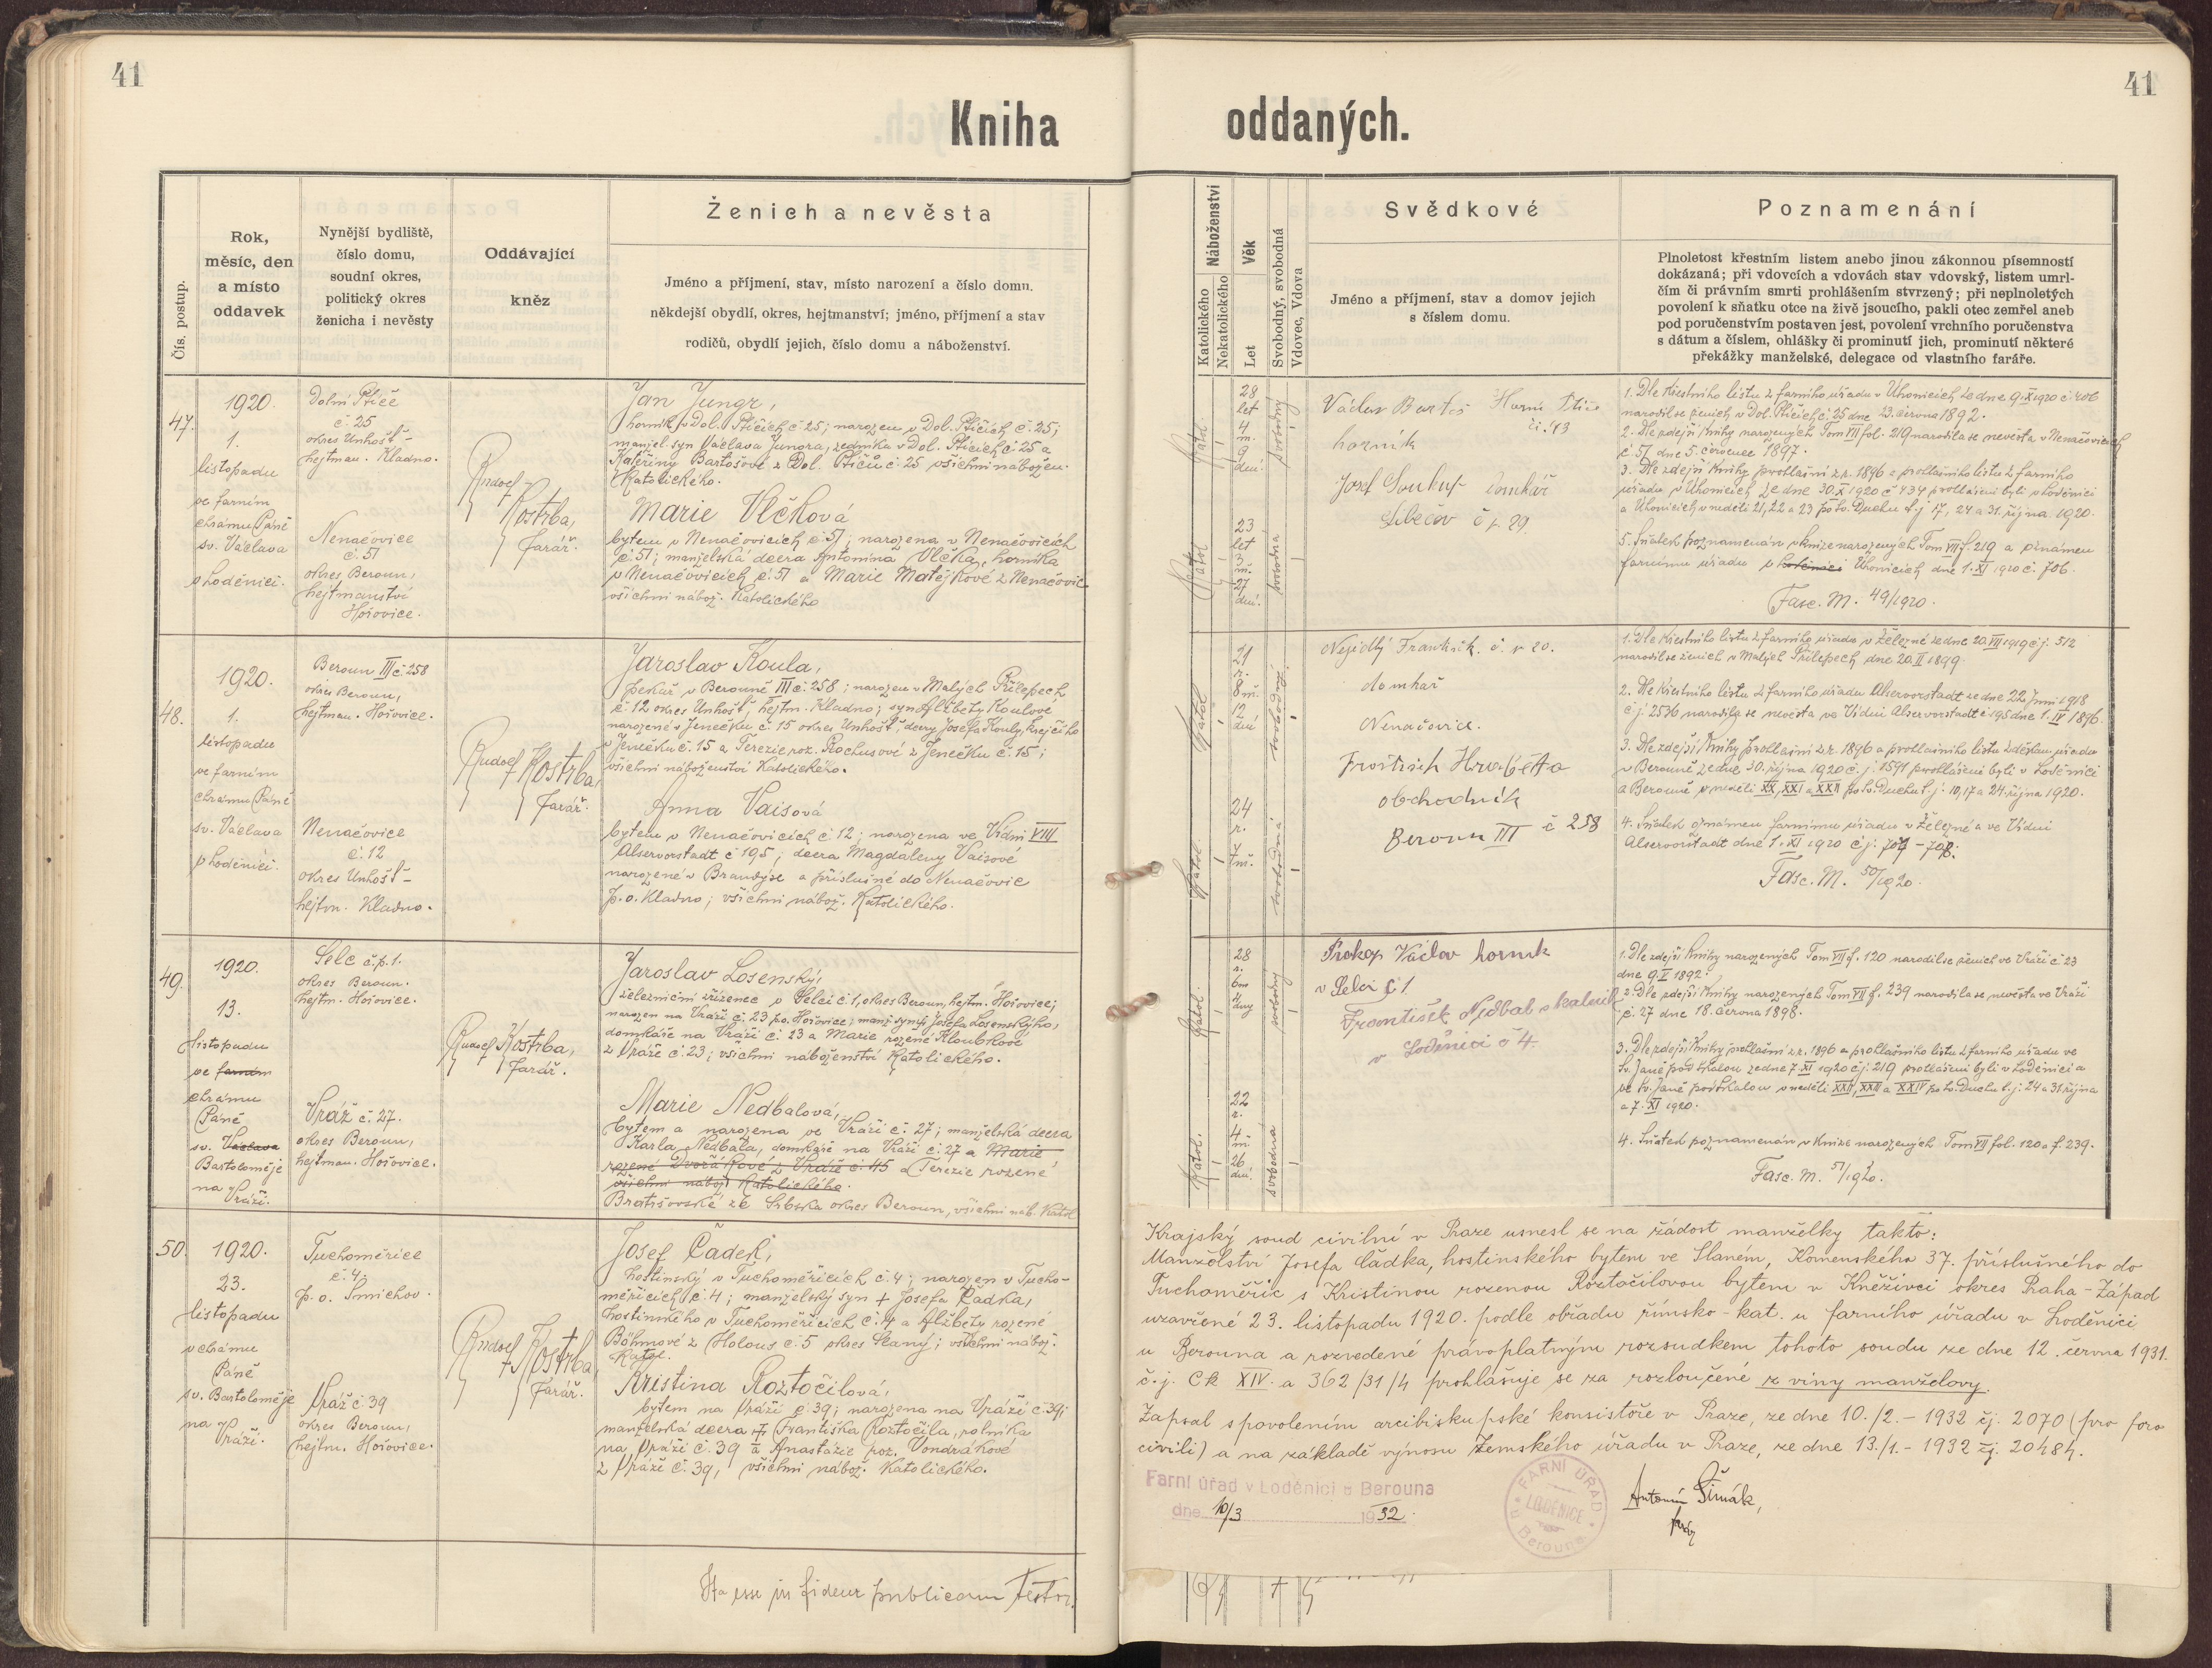 41
41
Kniha
oddaných.
Čís. postup.
Rok,
měsíc, den
a místo
oddavek
Nynější bydliště,
číslo domu,
soudní okres,
politický okres
ženicha i nevěsty
Oddávající
kněz
Ženich a nevěsta
Jméno a příjmení, stav, místo narození a číslo domu.
někdejší obydlí, okres, hejtmanství; jméno, příjmení a stav
rodičů, obydlí jejich, číslo domu a náboženství.
47.
1920.
1.
listopadu
ve farním
chrámu Páně
sv. Václava
v Loděnici.
Dolní Ptice
č. 25
okres Unhošť-
hejtman. Kladno.
Nenačovice
č. 51
okres Beroun,
hejtmanství
Hořovice.
Rudolf
Kostrba,
farář.
Jan Jungr,
horník v Dol. Pticích č. 25; narozen v Dol. Pticích č. 25;
manžel. syn Václava Jungra, zedníka v Dol. Pticích č. 25 a
Kateřiny Bartošové z Dol. Ptic č. 25 všichni nábožen.
Katolického.
Marie Vlčková
bytem v Nenačovicích č. 51; narozena v Nenačovicích
č. 51; manželská dcera Antonína Vlčka, horníka
v Nenačovicích č. 51 a Marie Matějkové z Nenačovic
všichni nábož. Katolického
48.
1920.
1.
listopadu
ve farním
chrámu Páně
sv. Václava
v Loděnici.
Beroun III č. 258
okres Beroun,
hejtman. Hořovice.
Nenačovice
č. 12
okres Unhošť-
hejtm. Kladno.
Rudolf Kostrba,
farář.
Jaroslav Koula,
pekař v Berouně III č. 258; narozen v Malých Přílepech
č. 12 okres Unhošť, hejtm. Kladno; syn Alžběty Koulové
narozené v Jenečku č. 15 okres Unhošť, dcery Josefa Kouly, krejčího
v Jenečku č. 15 a Terezie roz. Prochusové z Jenečku č. 15;
všichni náboženství Katolického.
Anna Vaisová
bytem v Nenačovicích č. 12; narozena ve Vídni VIII
Alservorstadt č 195; dcera Magdaleny Vaisové
narozené v Brandýse a příslušné do Nenačovic
p. o. Kladno; všichni nábož. Katolického.
49.
1920.
13.
listopadu
ve farním
chrámu
Páně
sv. Václava
Bartoloměje
na
Vráži.
Selc č.p. 1.
okres Beroun.
hejtm. Hořovice.
Vráž č. 27.
okres Beroun,
hejtman. Hořovice.
Rudolf Kostrba,
farář.
Jaroslav Losenský,
železniční zřízenec v Selci č. 1, okres Beroun, hejtm. Hořovice;
narozen na Vráži č. 23 p.o. Hořovice; manž. syn Josefa Losenského,
domkáře na Vráži č. 23 a Marie rozené Kloubkové
z Vráže č. 23; všichni náboženství Katolického.
Marie Nedbalová,
bytem a narozena ve Vráži č. 27; manželská dcera
Karla Nedbala, domkáře na Vráži č. 27 a Marie
rozené Dvořákové z Vráže č. 45 a Terezie rozené
všichni nábož. Katolického.
ze Srbska okres Beroun, všichni náb. Katol
50.
1920.
23.
listopadu
v chrámu
Páně
sv. Bartoloměje
na
Vráži.
Tuchoměřice
č. 4
p. o. Smíchov.
Vráž č. 39
okres Beroun,
hejtm. Hořovice.
Rudolf Kostrba,
farář.
Josef Čadek,
hostinský v Tuchoměřicích č. 4; narozen v Tucho-
měřicích č. 4; manželský syn + Josefa Čadka,
hostinského v Tuchoměřicích č. 4 a Alžběty rozené
Böhmové z Holous č. 5 okres Slaný; všichni nábož.
Katol.
Kristina Roztočilová,
bytem na Vráži č. 39; narozena na Vráži č. 39;
manželská dcera + Františka Roztočila, rolníka
na Vráži č. 39 a Anastázie roz. Vondrákové
z Vráže č. 39, všichni nábož. Katolického.
Ita esse in fidem publicam testor.
Náboženství
Katolického
Nekatolického
Věk
Let
Svobodný, svobodná
Vdovec, Vdova
Svědkové
Jméno a příjmení, stav a domov jejich
s číslem domu.
Poznamenání
Plnoletost křestním listem anebo jinou zákonnou písemností
dokázaná; při vdovcích a vdovách stav vdovský, listem umrl-
čím či právním smrti prohlášením stvrzený; při neplnoletých
povolení k sňatku otce na živě jsoucího, pakli otec zemřel aneb
pod poručenstvím postaven jest, povolení vrchního poručenstva
s dátum a číslem, ohlášky či prominutí jich, prominutí některé
překážky manželské, delegace od vlastního faráře.
Katol.
28
let
4
m.
9
dní.
svobodný
Katol
23
let
3
m.
27
dní.
svobodna
Václav Bartoš Horní Ptice
č. 43
horník
Josef Soukup domkář
č p. 29.
1. Dle křestního listu z farního úřadu v Úhonicích ze dne 9. X 1920 č. 206
narodil se ženich v Dol. Pticích č. 25 dne 23. června 1892.
2. Dle zdejší knihy narozených Tom VII fol. 219 narodila se nevěsta v Nenačovicích
č. 51 dne 5. července 1897.
3. Dle zdejší knihy prohlašní z r. 1896 a prohlašního listu z farního
úřadu v Úhonicích ze dne 30. X 1920 č 434 prohlášeni byli v Loděnici
a Úhonicích v neděli 21, 22 a 23 po sv. Duchu t.j. 17, 24 a 31. října 1920.
5. Sňatek poznamenán v knize narozených Tom VII f. 219 a oznámen
farnímu úřadu v Úhonicích dne 1. XI 1920 č. 706.
Fasc. M. 49/1920.
Katol
21
r.
8 m.
12
dní
svobodný
Katol
24
r.
7
m.
svobodná
Nejedlý František. č. p 20.
domkář
Nenačovice.
František Hraběta
obchodník
Beroun III č 258
1. Dle křestního listu z farního úřadu v Železné ze dne 20. VII 1919 č.j. 512
narodil se ženich v Malých Přílepech dne 20. II 1899.
2. Dle křestního listu z farního úřadu Alservorstadt ze dne 22. Juni 1918
č j 2536 narodila se nevěsta ve Vídni Alservorstadt č 195 dne 1. IV 1896.
3. Dle zdejší knihy prohlašní z r. 1896 a prohlašního listu z děkan. úřadu
v Berouně ze dne 30. října 1920 č. j. 1591 prohlášeni byli v Loděnici
a Berouně v neděli XX, XXI a XXII po sv. Duchu t. j. 10, 17 a 24. října 1920.
4. Sňatek oznámen farnímu úřadu v Železné a ve Vídni
Alservorstadt dne 1. XI 1920 č j. 707 - 708.
Fasc. M. 50/1920.
Katol.
28
r.
6 m
4
dny
svobodný
Katol.
22
r.
4
m.
26
dní.
svobodna
Prokop Václav horník
v Selci č 1
František Nedbal skalník
v Loděnici č 4.
1. Dle zdejší knihy narozených Tom VII f. 120 narodil se ženich ve Vráži č 23
dne 9. V 1892.
2. Dle zdejší knihy narozených Tom VII f. 239 narodila se nevěsta ve Vráži
č. 27 dne 18. června 1898.
3. Dle zdejší knihy prohlašní z r. 1896 a prohlašního listu z farního úřadu ve
Sv. Janě pod Skalou ze dne 7. XI 1920 č j: 219 prohlášeni byli v Loděnici a
ve Sv. Janě pod Skalou v neděli XXII, XXIII a XXIV po sv. Duchu t.j. 24 a 31. října
a 7. XI 1920.
4. Sňatek poznamenán v Knize narozených Tom VII fol. 120 a f. 239.
Fasc. M. 51/1920.
Krajský soud civilní v Praze usnesl se na žádost manželky takto:
Manželství Josefa Čádka, hostinského bytem ve Slaném, Komenského 37. příslušného do
Tuchoměřic s Kristinou rozenou Roztočilovou bytem v Kněživci okres Praha-Západ
uzavřené 23. listopadu 1920. podle obřadu římsko-kat. u farního úřadu v Loděnici
u Berouna a rozvedené právoplatným rozsudkem tohoto soudu ze dne 12. června 1931.
č. j. Ck XIV. a 362/31/4 prohlašuje se za rozloučené z viny manželovy.
Zapsal s povolením arcibiskupské konsistoře v Praze, ze dne 10./2. - 1932 čj. 2070 (pro foro
civili) a na základě výnosu Zemského úřadu v Praze, ze dne 13./1. - 1932 čj. 20484.
Farní úřad v Loděnici u Berouna
dne 10/3 1932.
FARNÍ ÚŘAD
LODĚNICE
u Berouna
Antonín Šimák,
farář